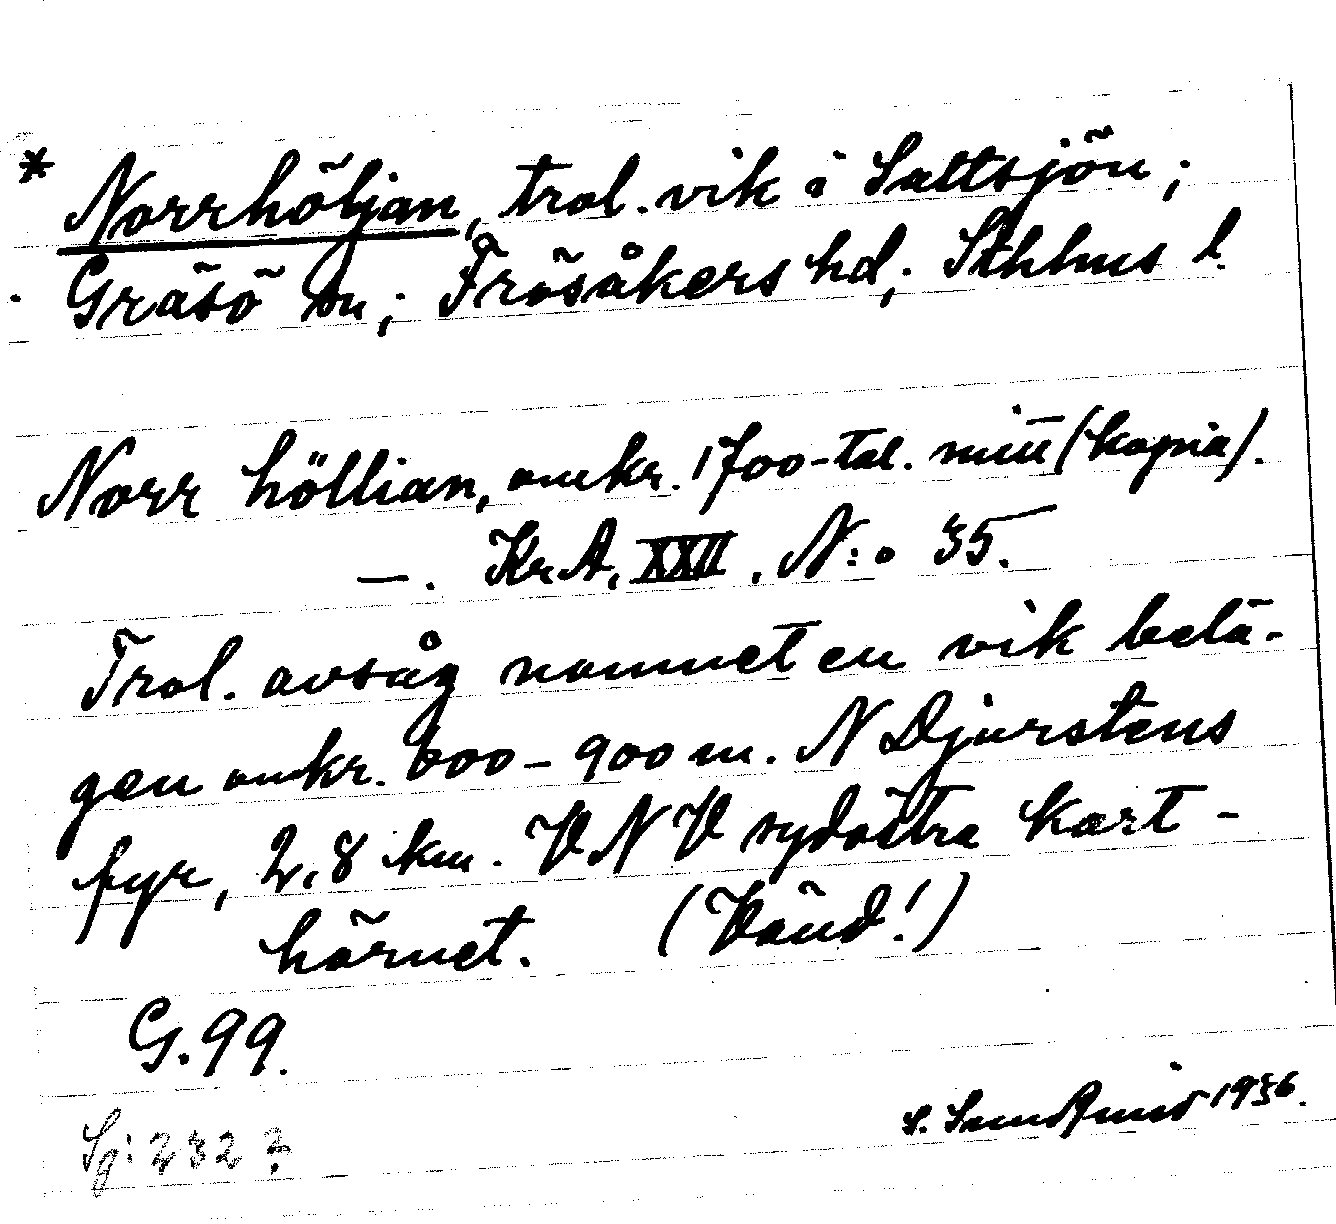 * Norrhöljan, trol. vik i Saltsjön;
Gräsö sn; Frösåkers hd; Sthlms l.
Norr höllian, omkr. 1700-tal. mitt (kopia).
—. Kr A, XXII, N:o 35.
Trol. avsåg namnet en vik belä-
gen omkr. 600-900 m. N Djurstens
fyr, 2,8 km. V N V sydöstra kart-
hörnet. (Vänd!)
G. 99.
S. Sundquist 1936.
Sj: 232 ?